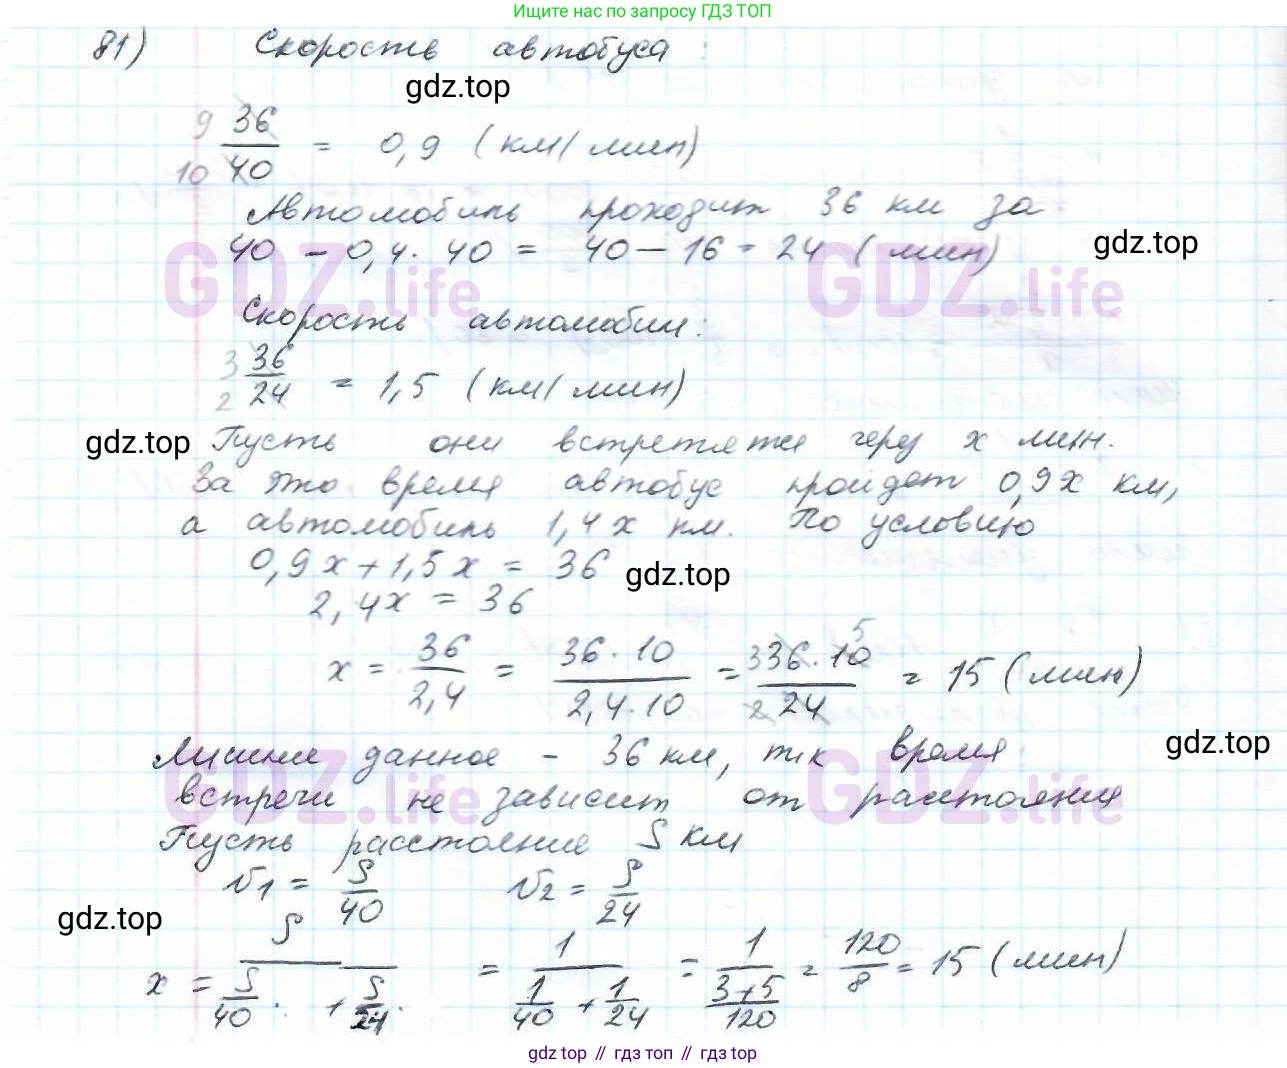 Ищите нас по запросу ГДЗ ТОП
81) Скорость автобуса :
gdz.top
9 36
10 40 = 0,9 (км/мин)
Автомобиль проходит 36 км за
40 - 0,4 · 40 = 40 - 16 = 24 (мин)
gdz.top
GDZ.life GDZ.life
Скорость автомобиля:
3 36
2 24 = 1,5 (км/мин)
gdz.top
Пусть они встретятся через x мин.
За это время автобус пройдет 0,9x км,
а автомобиль 1,4x км. По условию
0,9x + 1,5x = 36
gdz.top
2,4x = 36
x = 36/2,4 = 36 · 10/2,4 · 10 = 3 36 · 10 5/2 24 = 15 (мин)
Лишнее данное - 36 км, т.к время
gdz.top
GDZ.life GDZ.life
встречи не зависит от расстояния
Пусть расстояние S км
v1 = S/40 v2 = S/24
gdz.top
x = S/(S/40 + S/24) = 1/(1/40 + 1/24) = 1/((3+5)/120) = 120/8 = 15 (мин)
gdz.top // гдз топ // gdz.top